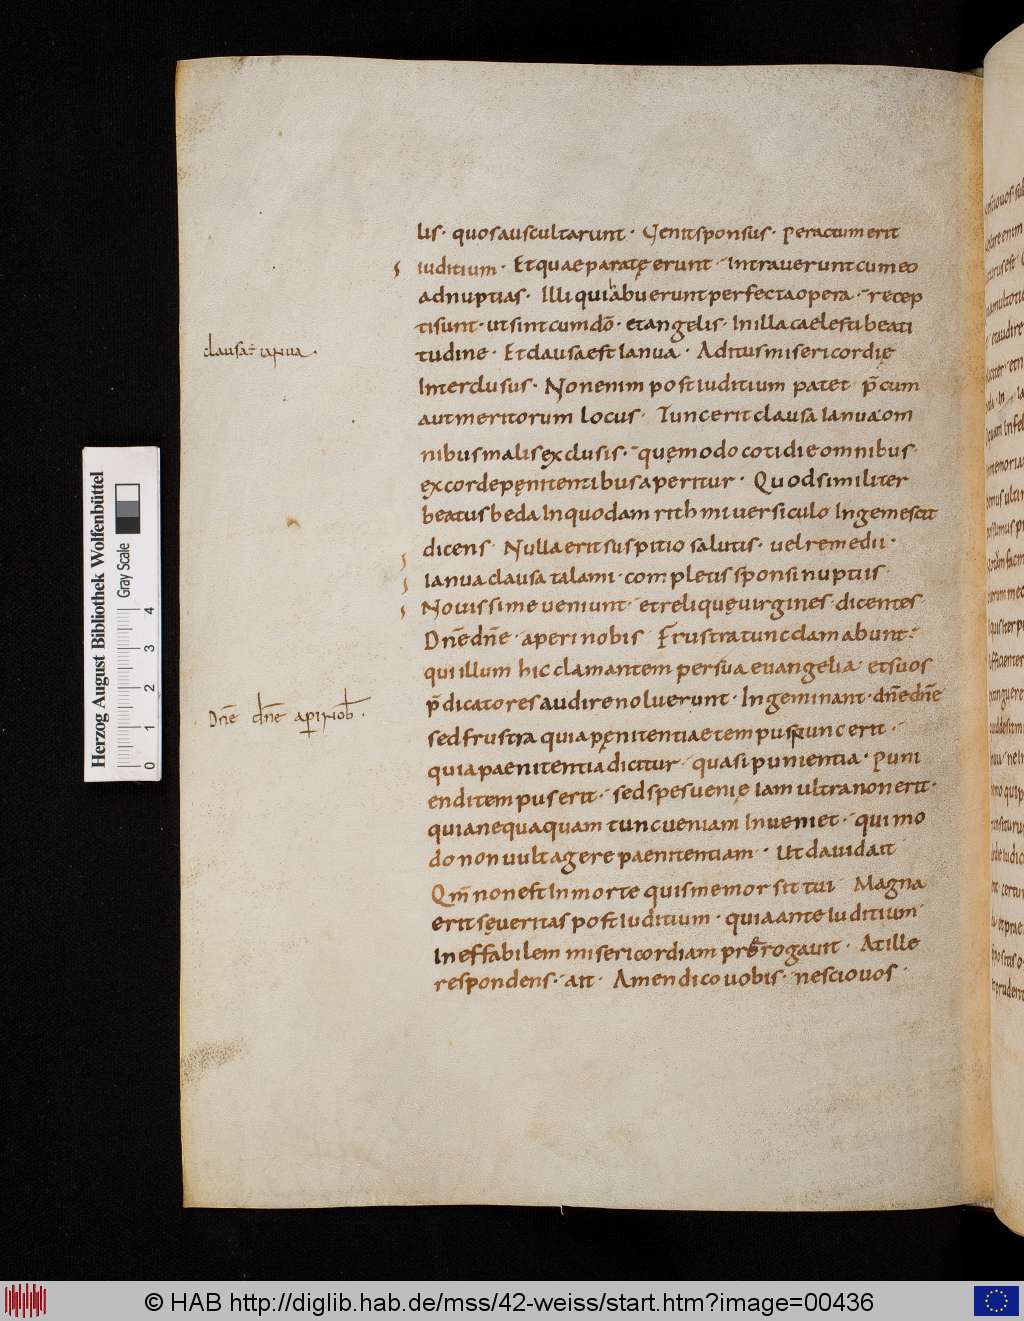 lis· quos auscultarunt· Uenit sponsus· Peractum erit
iuditium· Et quae paratę erunt· intrauerunt cum eo
ad nuptias· Illi qui habuerunt perfecta opera· recep
ti sunt· ut sint cum dō· et angelis· In illa caelesti beati
tudine· Et clausa est Ianua· Aditus misericordię
clausa ē ianua·
Interclusus· Non enim post iuditium patet p̄cum
aut meritorum locus· Tunc erit clausa Ianua om
nibus malis exclusis· quę modo cotidie omnibus·
ex corde pęnitentibus aperitur· Quod similiter
beatus beda In quodam rithmi uersiculo Ingemescit
dicens· Nulla erit suspitio salutis· uel remedii·
Ianua clausa talami· completis sponsi nuptiis·
Nouissime ueniunt· et reliquę uirgines· dicentes·
Dn̄e dn̄e· aperi nobis Frustra tunc clamabunt·
qui illum hic clamantem per sua euangelia· et suos
p̄dicatores audire noluerunt· Ingeminant· dn̄e dn̄e
Dn̄e dn̄e aperi nob·
sed frustra quia pęnitentiae tempus nunc erit·
quia paenitentia dicitur· quasi punientia· Puni
endi tempus erit· sed spes uenię Iam ultra non erit·
quia nequaquam tunc ueniam Inueniet· qui mo
do non uult agere paenitentiam· Ut dauid ait
Qm̄ non est In morte qui memor sit tui Magna
erit sęueritas post Iuditium· quia ante Iuditium
Ineffabilem misericordiam prerogauit· At ille
respondens· ait· Amen dico uobis· nescio uos·
Herzog August Bibliothek Wolfenbüttel
Gray Scale
0 1 2 3 4
© HAB http://diglib.hab.de/mss/42-weiss/start.htm?image=00436